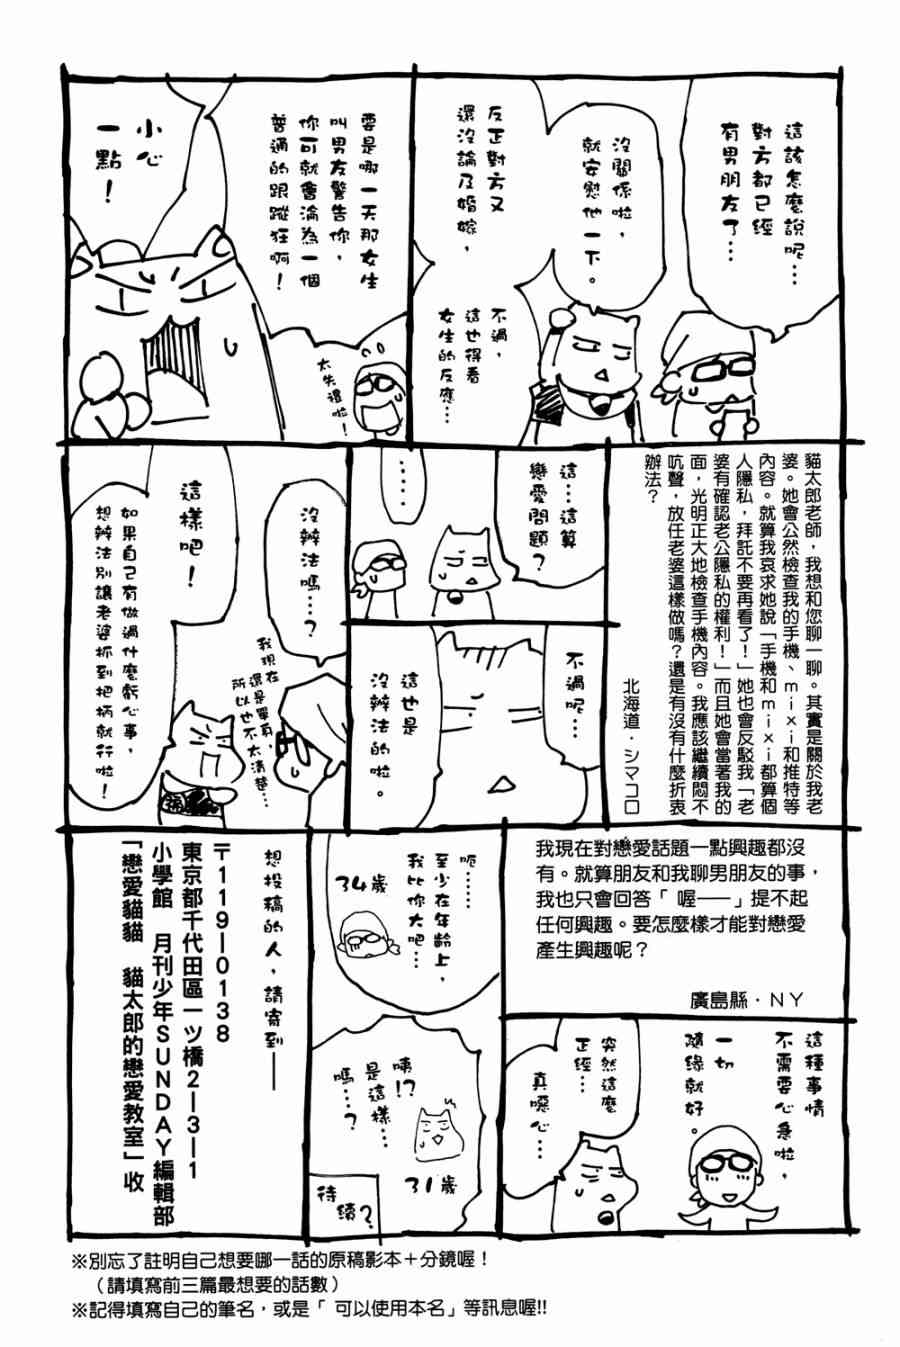 這該怎麼說呢…
對方都已經
有男朋友了…
沒關係啦，
就安慰他一下。
反正對方又
還沒論及婚嫁，
不過，
這也得看
女生的反應…
要是哪一天那女生
叫男友警告你，
你可就會淪為一個
普通的跟蹤狂啊！
太失禮啦！
小心
一點！
貓太郎老師，我想和您聊一聊。其實是關於我老
婆。她會公然檢查我的手機、mixi和推特等
內容。就算我哀求她說「手機和mixi都算個
人隱私，拜託不要再看了！」她也會反駁我「老
婆有確認老公隱私的權利！」而且她會當著我的
面，光明正大地檢查手機內容。我應該繼續悶不
吭聲，放任老婆這樣做嗎？還是有沒有什麼折衷
辦法？
北海道・シマコロ
這…這算
戀愛問題？
……
不過呢…
這也是
沒辦法的。
沒辦法嗎…？
我現在
還是單身，
所以也不太清楚…
這樣吧！
如果自己有做過什麼虧心事，
想辦法別讓老婆抓到把柄就行啦！
我現在對戀愛話題一點興趣都沒
有。就算朋友和我聊男朋友的事，
我也只會回答「喔——」提不起
任何興趣。要怎麼樣才能對戀愛
產生興趣呢？
廣島縣・NY
這種事情
不需要心急啦，
一切
隨緣就好。
突然這麼
正經…
真噁心…
呃……
至少在年齡上，
我比你大吧…
34歲
咦!?
是這樣
嗎…？
31歲
待續？
想投稿的人，請寄到——
〒119-0138
東京都千代田區一ツ橋2-3-1
小學館　月刊少年SUNDAY編輯部
「戀愛貓貓　貓太郎的戀愛教室」收
※別忘了註明自己想要哪一話的原稿影本＋分鏡喔！
（請填寫前三篇最想要的話數）
※記得填寫自己的筆名，或是「可以使用本名」等訊息喔!!